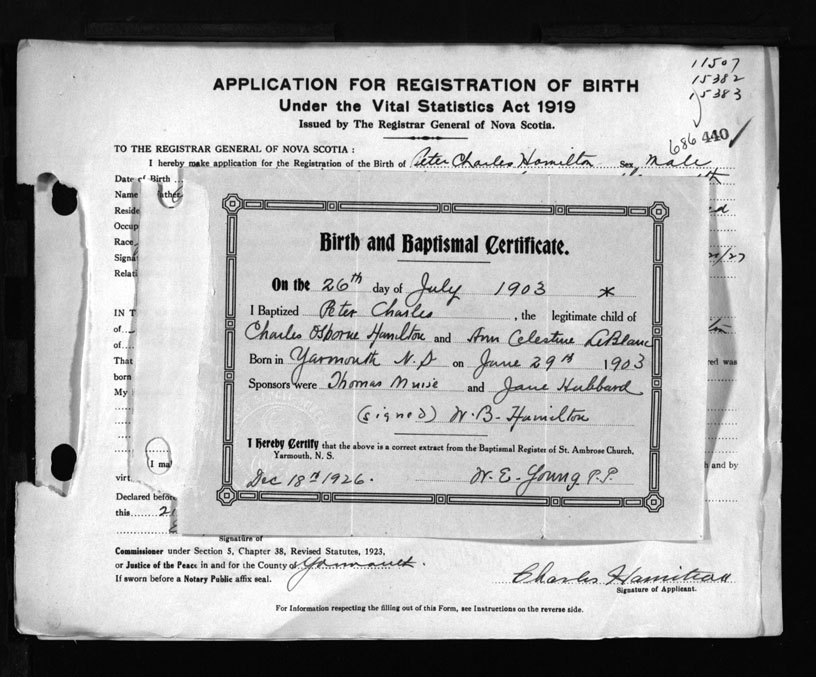 11507
15382
15383
APPLICATION FOR REGISTRATION OF BIRTH
Under the Vital Statistics Act 1919
Issued by The Registrar General of Nova Scotia.
686 440
TO THE REGISTRAR GENERAL OF NOVA SCOTIA :
I hereby make application for the Registration of the Birth of Peter Charles Hamilton Sex Male
Date of Birth
Name Father
Reside
Occup
Race
Signa
Relati
IN T
of
of
That
born
My
I ma
virt
Declared before
this
Birth and Baptismal Certificate.
On the 26th day of July 1903 *
I Baptized Peter Charles, the legitimate child of
Charles Osborne Hamilton and Ann Celestine LeBlanc
Born in Yarmouth N.S on June 29th 1903
Sponsors were Thomas Muise and Jane Hubbard
(signed) W. B. Hamilton
I Hereby Certify that the above is a correct extract from the Baptismal Register of St. Ambrose Church,
Yarmouth, N. S.
Dec 18th 1926. W. E. Young P.P.
red was
h and by
Signature of
Commissioner under Section 5, Chapter 38, Revised Statutes, 1923,
or Justice of the Peace in and for the County of Yarmouth.
If sworn before a Notary Public affix seal.
Charles Hamilton
Signature of Applicant.
For Information respecting the filling out of this Form, see Instructions on the reverse side.